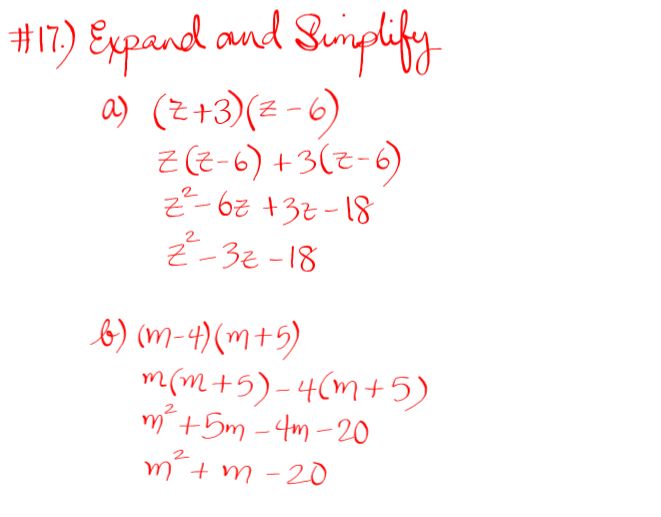 #17.) Expand and Simplify
a) (z+3)(z-6)
z(z-6) +3(z-6)
z²-6z +3z-18
z²-3z-18
b) (m-4)(m+5)
m(m+5)-4(m+5)
m²+5m-4m-20
m²+m-20